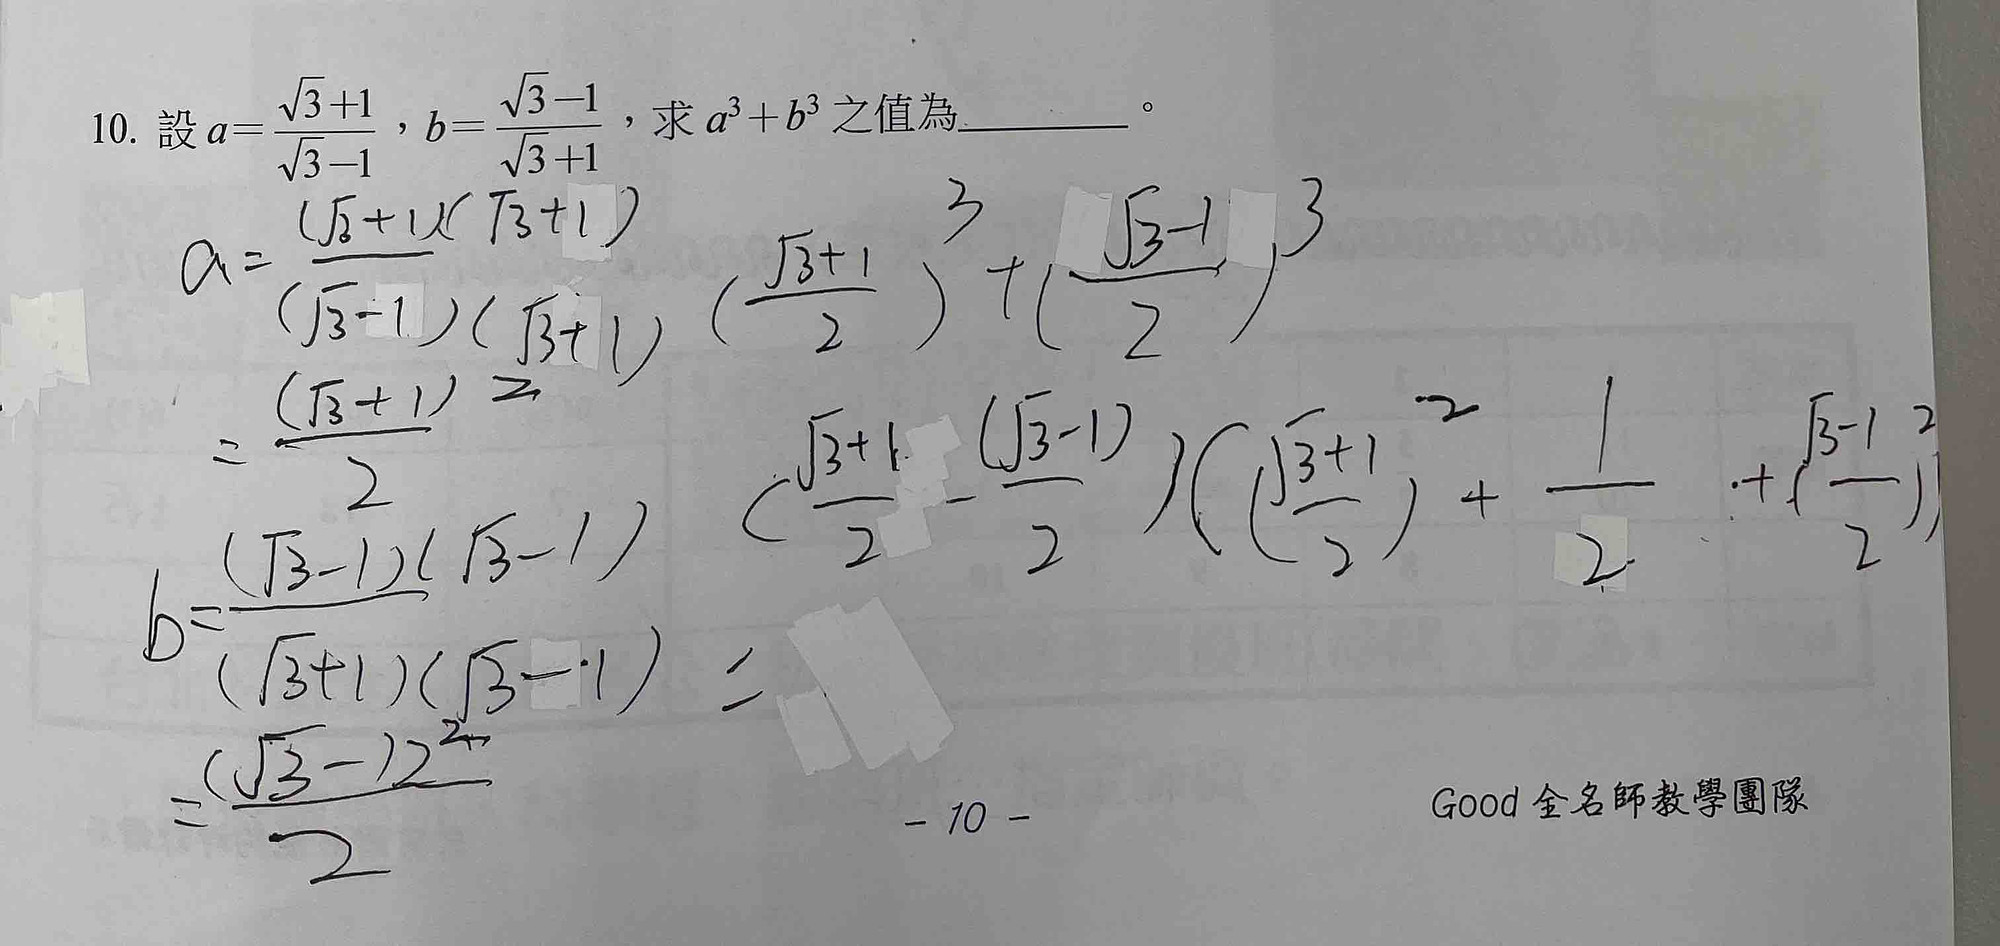 10. 設 a=(√3+1)/(√3−1)，b=(√3−1)/(√3+1)，求 a³+b³ 之值為________。
a= (√3+1)(√3+1)/(√3-1)(√3+1)
= (√3+1)²/2
b= (√3-1)(√3-1)/(√3+1)(√3-1)
= (√3-1)²/2
((√3+1)/2)³+((√3-1)/2)³
((√3+1)/2 - (√3-1)/2)(((√3+1)/2)² + 1/2 + ((√3-1)/2)²)
=
- 10 -
Good 全名師教學團隊